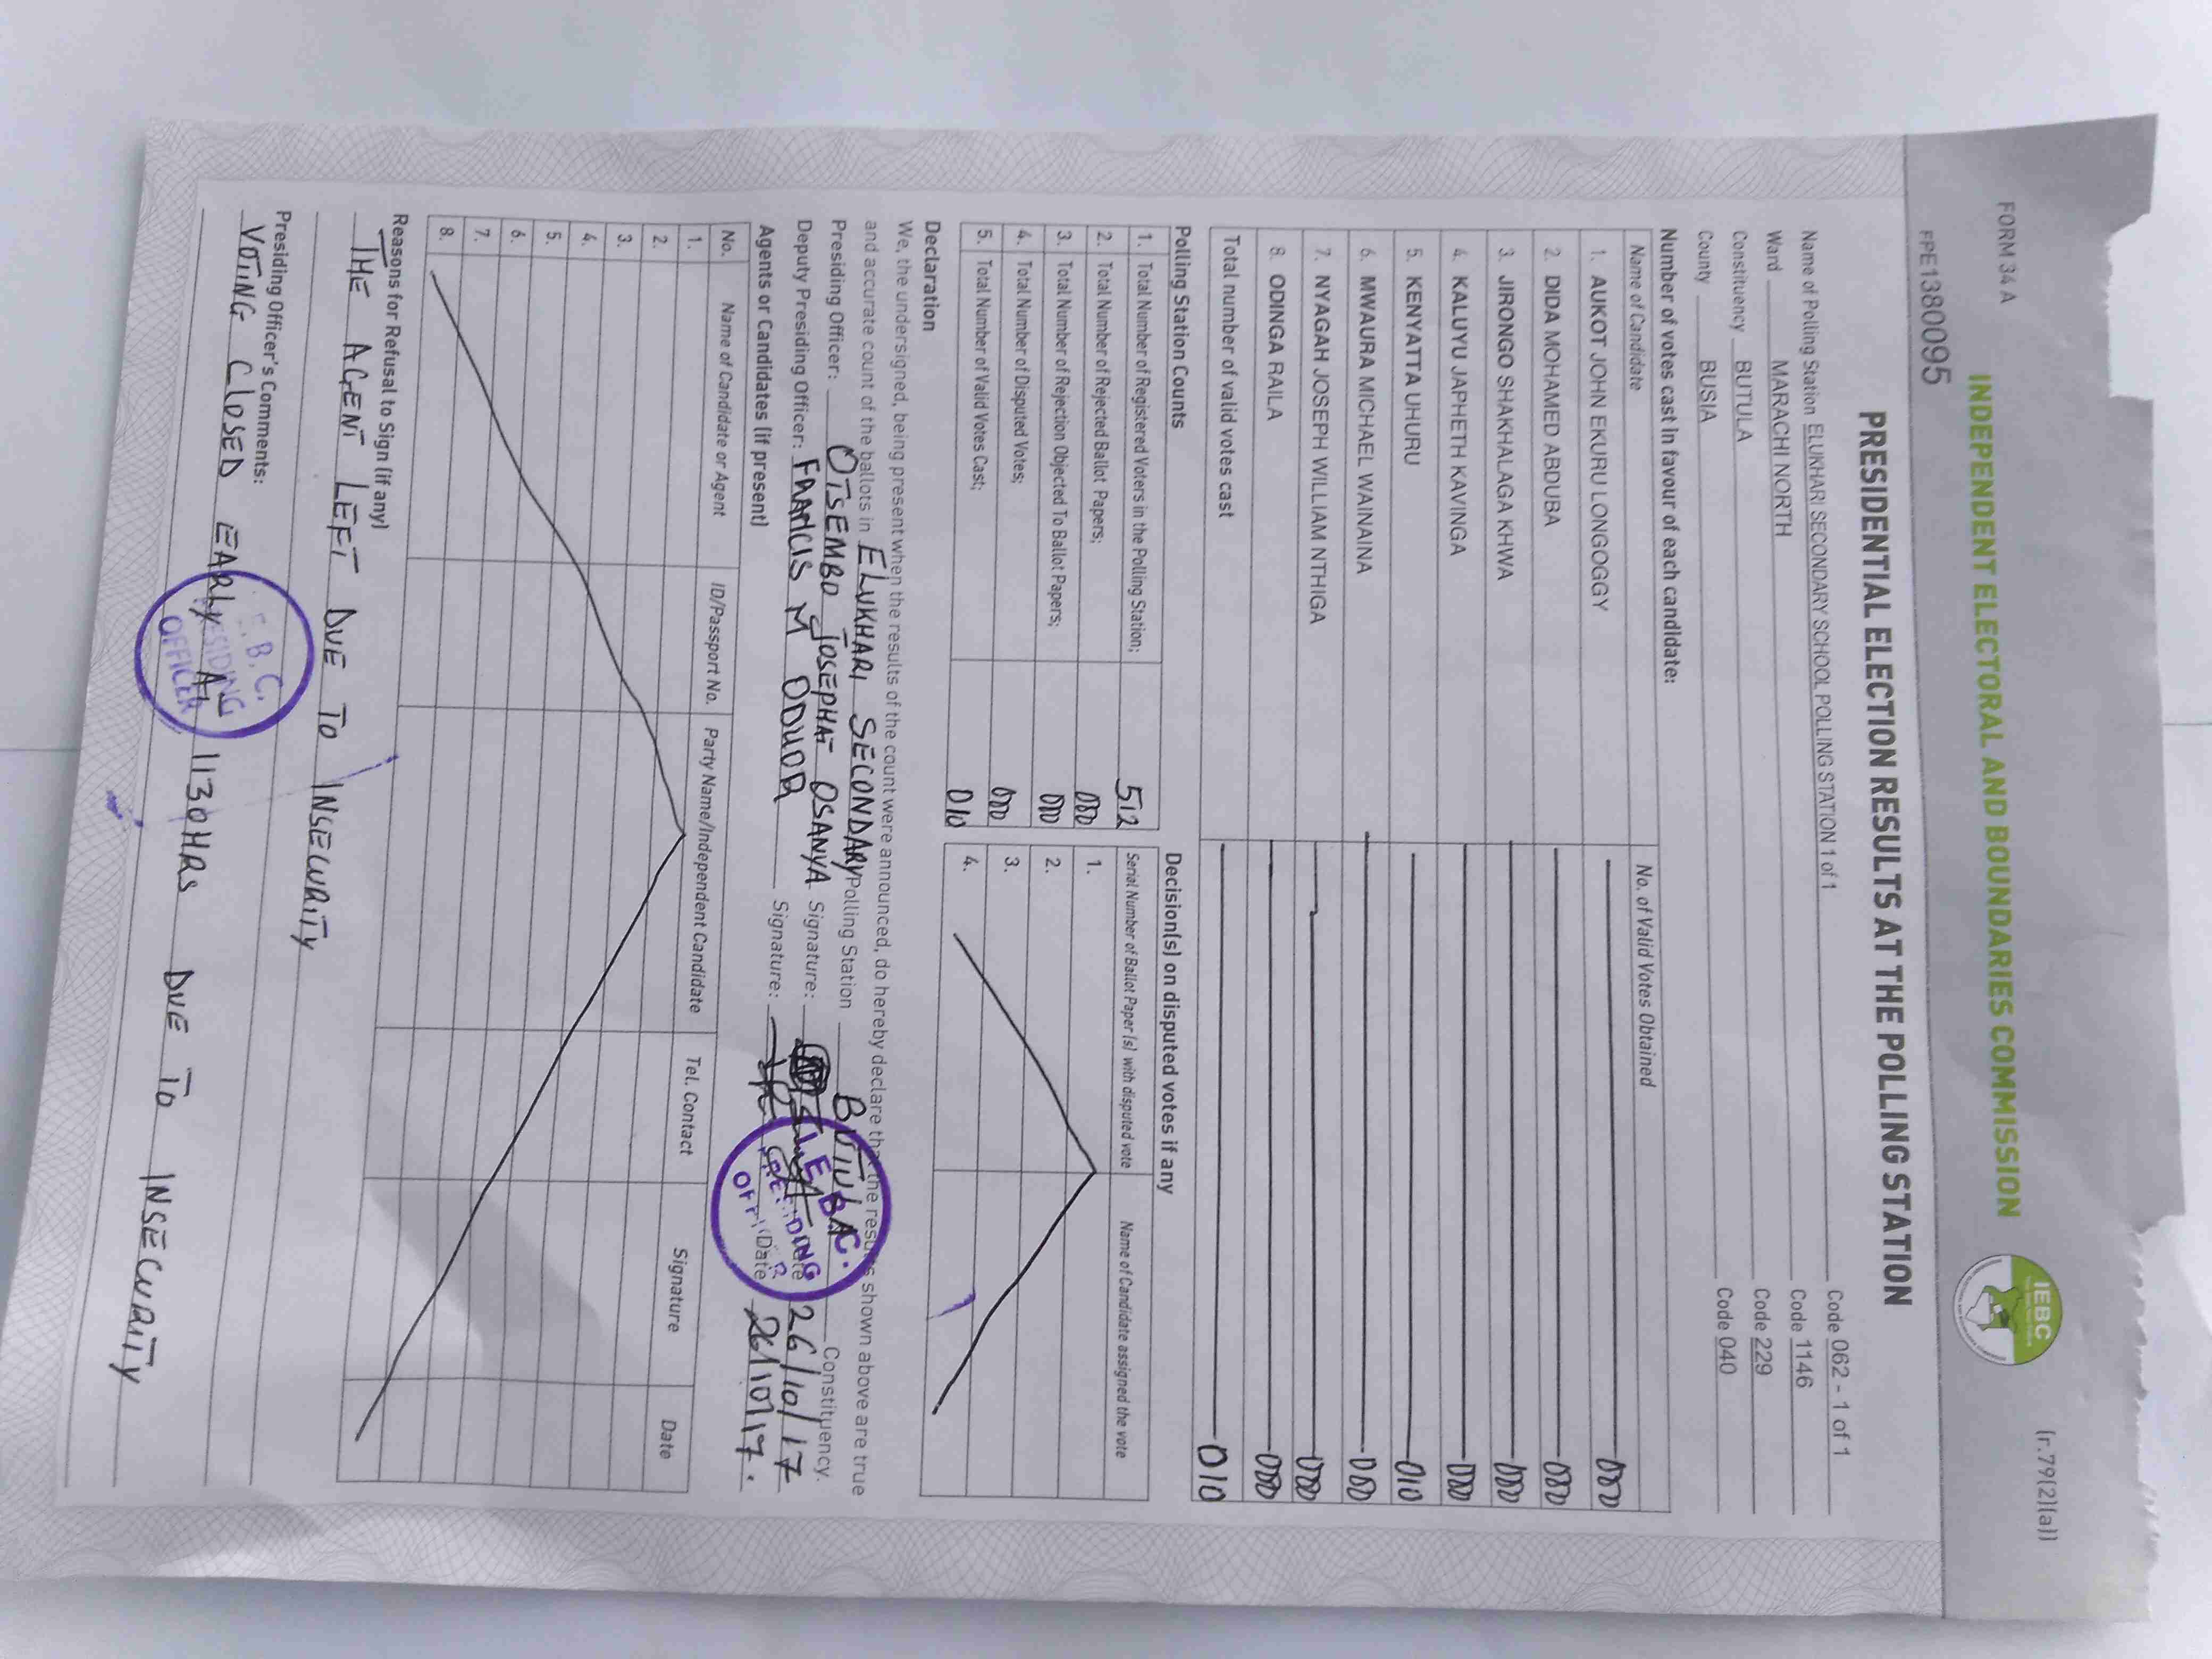 FORM 34 A
(r.79(2)(a))
INDEPENDENT ELECTORAL AND BOUNDARIES COMMISSION
IEBC
FPE1380095
PRESIDENTIAL ELECTION RESULTS AT THE POLLING STATION
Name of Polling Station ELUKHARI SECONDARY SCHOOL POLLING STATION 1 of 1 Code 062 - 1 of 1
Ward MARACHI NORTH Code 1146
Constituency BUTULA Code 229
County BUSIA Code 040
Number of votes cast in favour of each candidate:
Name of Candidate No. of Valid Votes Obtained
1. AUKOT JOHN EKURU LONGOGGY 000
2. DIDA MOHAMED ABDUBA 000
3. JIRONGO SHAKHALAGA KHWA 000
4. KALUYU JAPHETH KAVINGA 000
5. KENYATTA UHURU 010
6. MWAURA MICHAEL WAINAINA 000
7. NYAGAH JOSEPH WILLIAM NTHIGA 000
8. ODINGA RAILA 000
Total number of valid votes cast 010
Polling Station Counts
1. Total Number of Registered Voters in the Polling Station; 512
2. Total Number of Rejected Ballot Papers; 000
3. Total Number of Rejection Objected To Ballot Papers; 000
4. Total Number of Disputed Votes; 000
5. Total Number of Valid Votes Cast; 010
Decision(s) on disputed votes if any
Serial Number of Ballot Paper (s) with disputed vote Name of Candidate assigned the vote
1.
2.
3.
4.
Declaration
We, the undersigned, being present when the results of the count were announced, do hereby declare that the results shown above are true
and accurate count of the ballots in ELUKHARI SECONDARY Polling Station BUTULA Constituency.
Presiding Officer: OTSEMBO JOSEPHAT OSANYA Signature: Date 26/10/17
Deputy Presiding Officer: FRANCIS M ODUOR Signature: Date 26/10/17.
I.E.B.C.
PRESIDING
Agents or Candidates (if present)
No. Name of Candidate or Agent ID/Passport No. Party Name/Independent Candidate Tel. Contact Signature Date
1.
2.
3.
4.
5.
6.
7.
8.
Reasons for Refusal to Sign (if any)
THE AGENT LEFT DUE TO INSECURITY
Presiding Officer's Comments:
VOTING CLOSED EARLY AT 1130HRS DUE TO INSECURITY
E.B.C.
PRESIDING
OFFICER